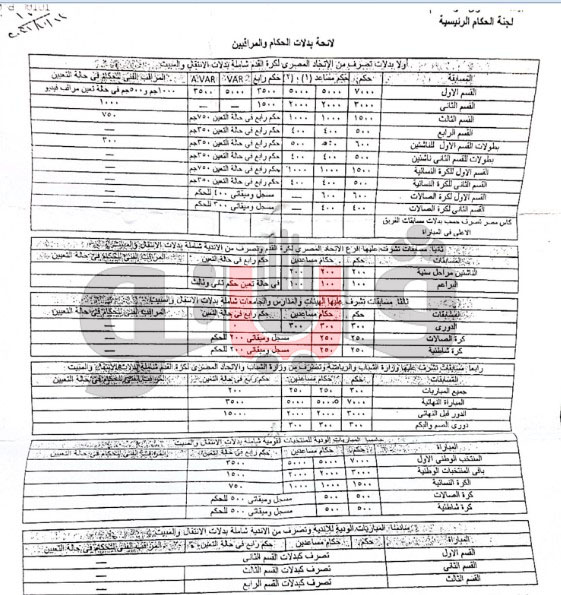 لجنة الحكام الرئيسية
لائحة بدلات الحكام والمراقبين
أولا بدلات تصرف من الإتحاد المصرى لكرة القدم شاملة بدلات الانتقال والمبيت
المسابقة حكم حكم مساعد (١) (٢) حكم رابع VAR A.VAR المراقب الفنى للحكام فى حالة التعيين
القسم الاول ٧٠٠٠ ٥٠٠٠ ٥٠٠٠ ٣٥٠٠ ٥٠٠٠ ٣٥٠٠ ١٠٠٠جم و٥٠٠جم فى حالة تعين مراقب فيديو
القسم الثانى ٣٠٠٠ ٢٠٠٠ ٢٠٠٠ ١٥٠٠ — — ١٠٠٠
القسم الثالث ١٥٠٠ ١٠٠٠ ١٠٠٠ حكم رابع فى حالة التعين ٧٥٠جم ٧٥٠
القسم الرابع ٥٠٠ ٤٠٠ ٤٠٠ حكم رابع فى حالة التعين ٣٥٠جم —
بطولات القسم الاول للناشئين ٦٠٠ ٥٠٠ ٥٠٠ حكم رابع فى حالة التعين ٣٥٠جم ٣٠٠
بطولات للقسم الثانى ناشئين ٥٠٠ ٤٠٠ ٤٠٠ حكم رابع فى حالة التعين ٣٥٠جم —
القسم الاول للكرة النسائية ١٥٠٠ ١٠٠٠ ١٠٠٠ حكم رابع فى حالة التعين ٧٥٠جم —
القسم الثانى للكرة النسائية ٥٠٠ ٤٠٠ ٤٠٠ حكم رابع فى حالة التعين ٣٥٠جم —
القسم الاول لكرة الصالات ٦٠٠ ٦٠٠ — مسجل وميقاتى ٤٠٠ للحكم —
القسم الثانى لكرة الصالات ٤٠٠ ٤٠٠ — مسجل وميقاتى ٣٠٠ للحكم —
كأس مصر تصرف حسب بدلات مسابقات الفريق
الاعلى فى المباراة
ثانيا مسابقات تشرف عليها افرع الاتحاد المصرى لكرة القدم وتصرف من الاندية شاملة بدلات الانتقال والمبيت
المسابقات حكم حكام مساعدين حكم رابع فى حالة التعين المراقب الفنى للحكام فى حالة التعيين
الناشئين مراحل سنية ٢٠٠ ٢٠٠ ٢٠٠
البراعم ١٠٠ ١٠٠ ١٠٠ فى حالة تعين حكم ثانى وثالث
ثالثا مسابقات تشرف عليها الهيئات والمدارس والجامعات شاملة بدلات الانتقال والمبيت
المسابقات حكم حكام مساعدين حكم رابع فى حالة التعين المراقب الفنى للحكام فى حالة التعيين
الدورى ٣٠٠ ٣٠٠ ٣٠٠
كرة الصالات ٢٥٠ ٢٥٠ مسجل وميقاتى ٢٠٠ للحكم
كرة شاطئية ٢٥٠ ٢٥٠ مسجل وميقاتى ٢٠٠ للحكم
رابعا مسابقات تشرف عليها وزارة الشباب والرياضة وتصرف من وزارة الشباب والاتحاد المصرى لكرة القدم شاملة بدلات الانتقال والمبيت
المسابقات حكم حكام مساعدين حكم رابع فى حالة التعين المراقب الفنى للحكام فى حالة التعيين
جميع المباريات ٣٠٠ ٢٥٠ ٢٥٠ ٢٠٠
المباراة النهائية ٧٠٠٠ ٥٠٠٠ ٥٠٠٠ ٣٥٠٠
الدور قبل النهائى ٣٠٠٠ ٢٠٠٠ ٢٠٠٠ ١٥٠٠
دورى الصم والبكم ٣٠٠ ٢٠٠ ٢٠٠
خامسا المباريات الودية للمنتخبات القومية شاملة بدلات الانتقال والمبيت
المباراة حكم حكام مساعدين حكم رابع فى حالة التعين المراقب الفنى للحكام فى حالة التعيين
المنتخب الوطنى الاول ٧٠٠٠ ٥٠٠٠ ٥٠٠٠ ٣٥٠٠
باقى المنتخبات الوطنية ٣٠٠٠ ٢٠٠٠ ٢٠٠٠ ١٥٠٠
الكرة النسائية ١٥٠٠ ١٠٠٠ ١٠٠٠ ٧٥٠
كرة الصالات ٥٠٠ ٥٠٠ مسجل وميقاتى ٥٠٠ للحكم
كرة شاطئية ٥٠٠ ٥٠٠ مسجل وميقاتى ٥٠٠ للحكم
سادسا المباريات الودية للاندية وتصرف من الاندية شاملة بدلات الانتقال والمبيت
المباراة حكم حكام مساعدين حكم رابع فى حالة التعين المراقب الفنى للحكام فى حالة التعيين
القسم الاول تصرف كبدلات القسم الثانى —
القسم الثانى تصرف كبدلات القسم الثالث —
القسم الثالث تصرف كبدلات القسم الرابع —